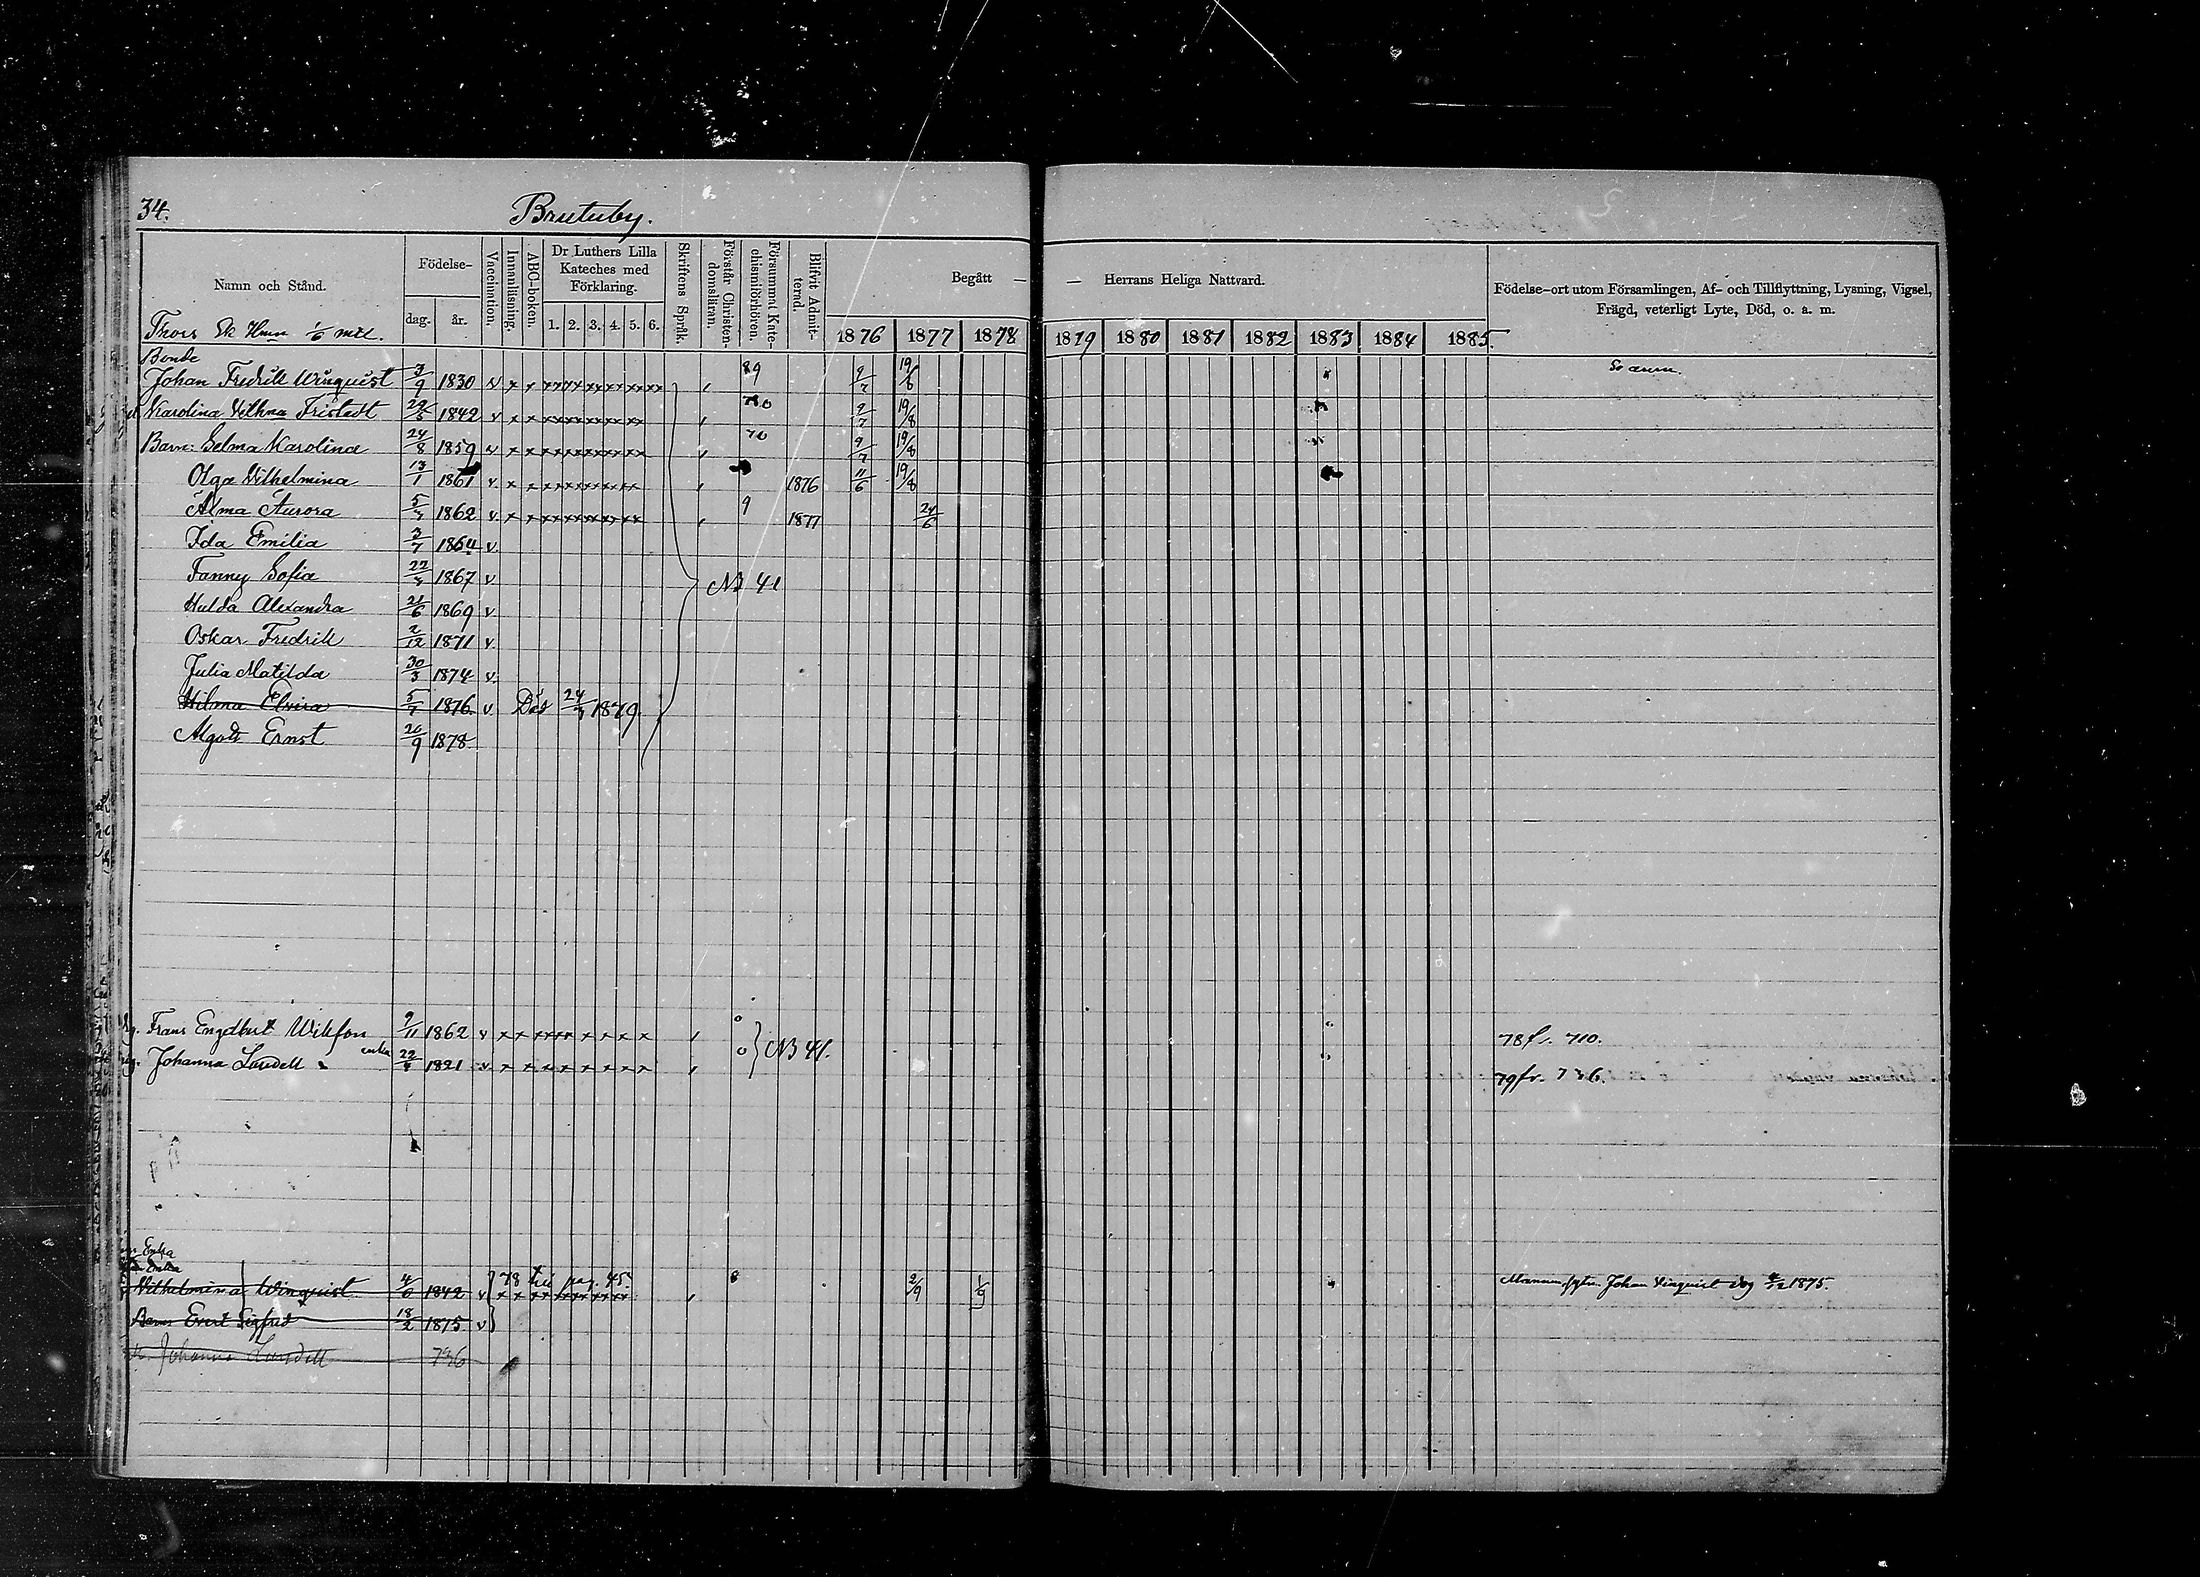 34.
Brutuby.
Namn och Stånd.
Födelse-
dag.
år.
Vaccination.
Innanläsning.
ABC-boken.
Dr Luthers Lilla Kateches med Förklaring.
1. 2. 3. 4. 5. 6.
Skriftens Språk.
Förstår Christendomsläran.
Försummat Katechismiförhören.
Blifvit Admitterad.
Begått — — Herrans Heliga Nattvard.
1876 1877 1878 1879 1880 1881 1882 1883 1884 1885
Födelse-ort utom Församlingen, Af- och Tillflyttning, Lysning, Vigsel, Frägd, veterligt Lyte, Död, o. a. m.
Thors Sk Hmn 1/6 mtl.
Bonde
Johan Fredrik Winquist 3/9 1830 v x x xxxx xxxxxxx , 89 9/7 19/8
Karolina Vilhma Fristedt 1842 v x x xxxxxxxxxx , 9/7 19/8
Barn: Selma Karolina 24/8 1859 v x x xxxxxxxxxx , 70 9/7 19/8
Olga Vilhelmina 13/1 1861 v x x xxxxxxxxxx , 1876 11/6 19/8
Alma Aurora 1862 v. x x xxxxxxxxxx , 9 1877 24/6
Ida Emilia 3/7 1864 v.
Fanny Sofia 1867 v
NB 41
Hulda Alexandra 21/6 1869 v.
Oskar Fredrik 2/12 1871 v.
Julia Matilda 30/3 1874 v.
Hilma Elvira 5/7 1876 v. Död 1879.
Algot Ernst 20/9 1878
Frans Engelbert Wikfon 9/11 1862 v x x xxxx x x x x , o 78 fr. 710.
NB 41.
Johanna Lundell enka 1821 v x x x x x x x x , o 79 fr. 736.
Enka
Vilhelmina Winquist 4/6 1842 v 78 till pag. 45. , 2/9 1/9 Johan Winquist dog 1875.
Barn Evert Sigfrid 18/2 1875 v
Johanna Lundell 736